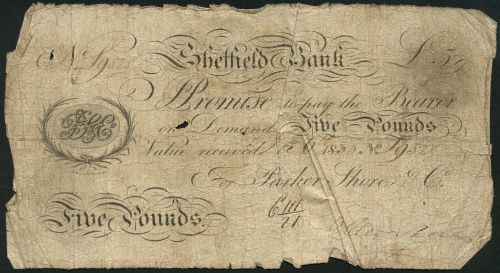 No. 195 Sheffield Bank £5
I Promise to pay the Bearer
on Demand Five Pounds
Value received 1833 No. 195
For Parker, Shore & Co.
Five Pounds.